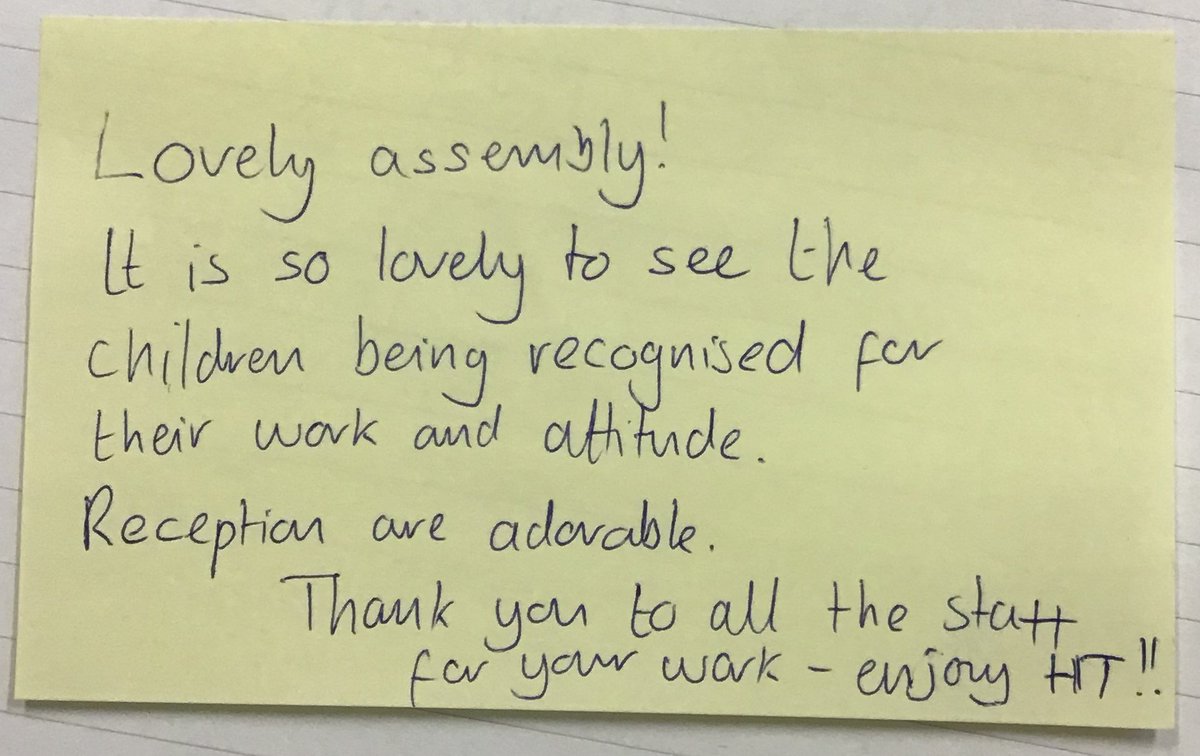 Lovely assembly!
It is so lovely to see the
children being recognised for
their work and attitude.
Reception are adorable.
Thank you to all the staff
for your work - enjoy HT!!